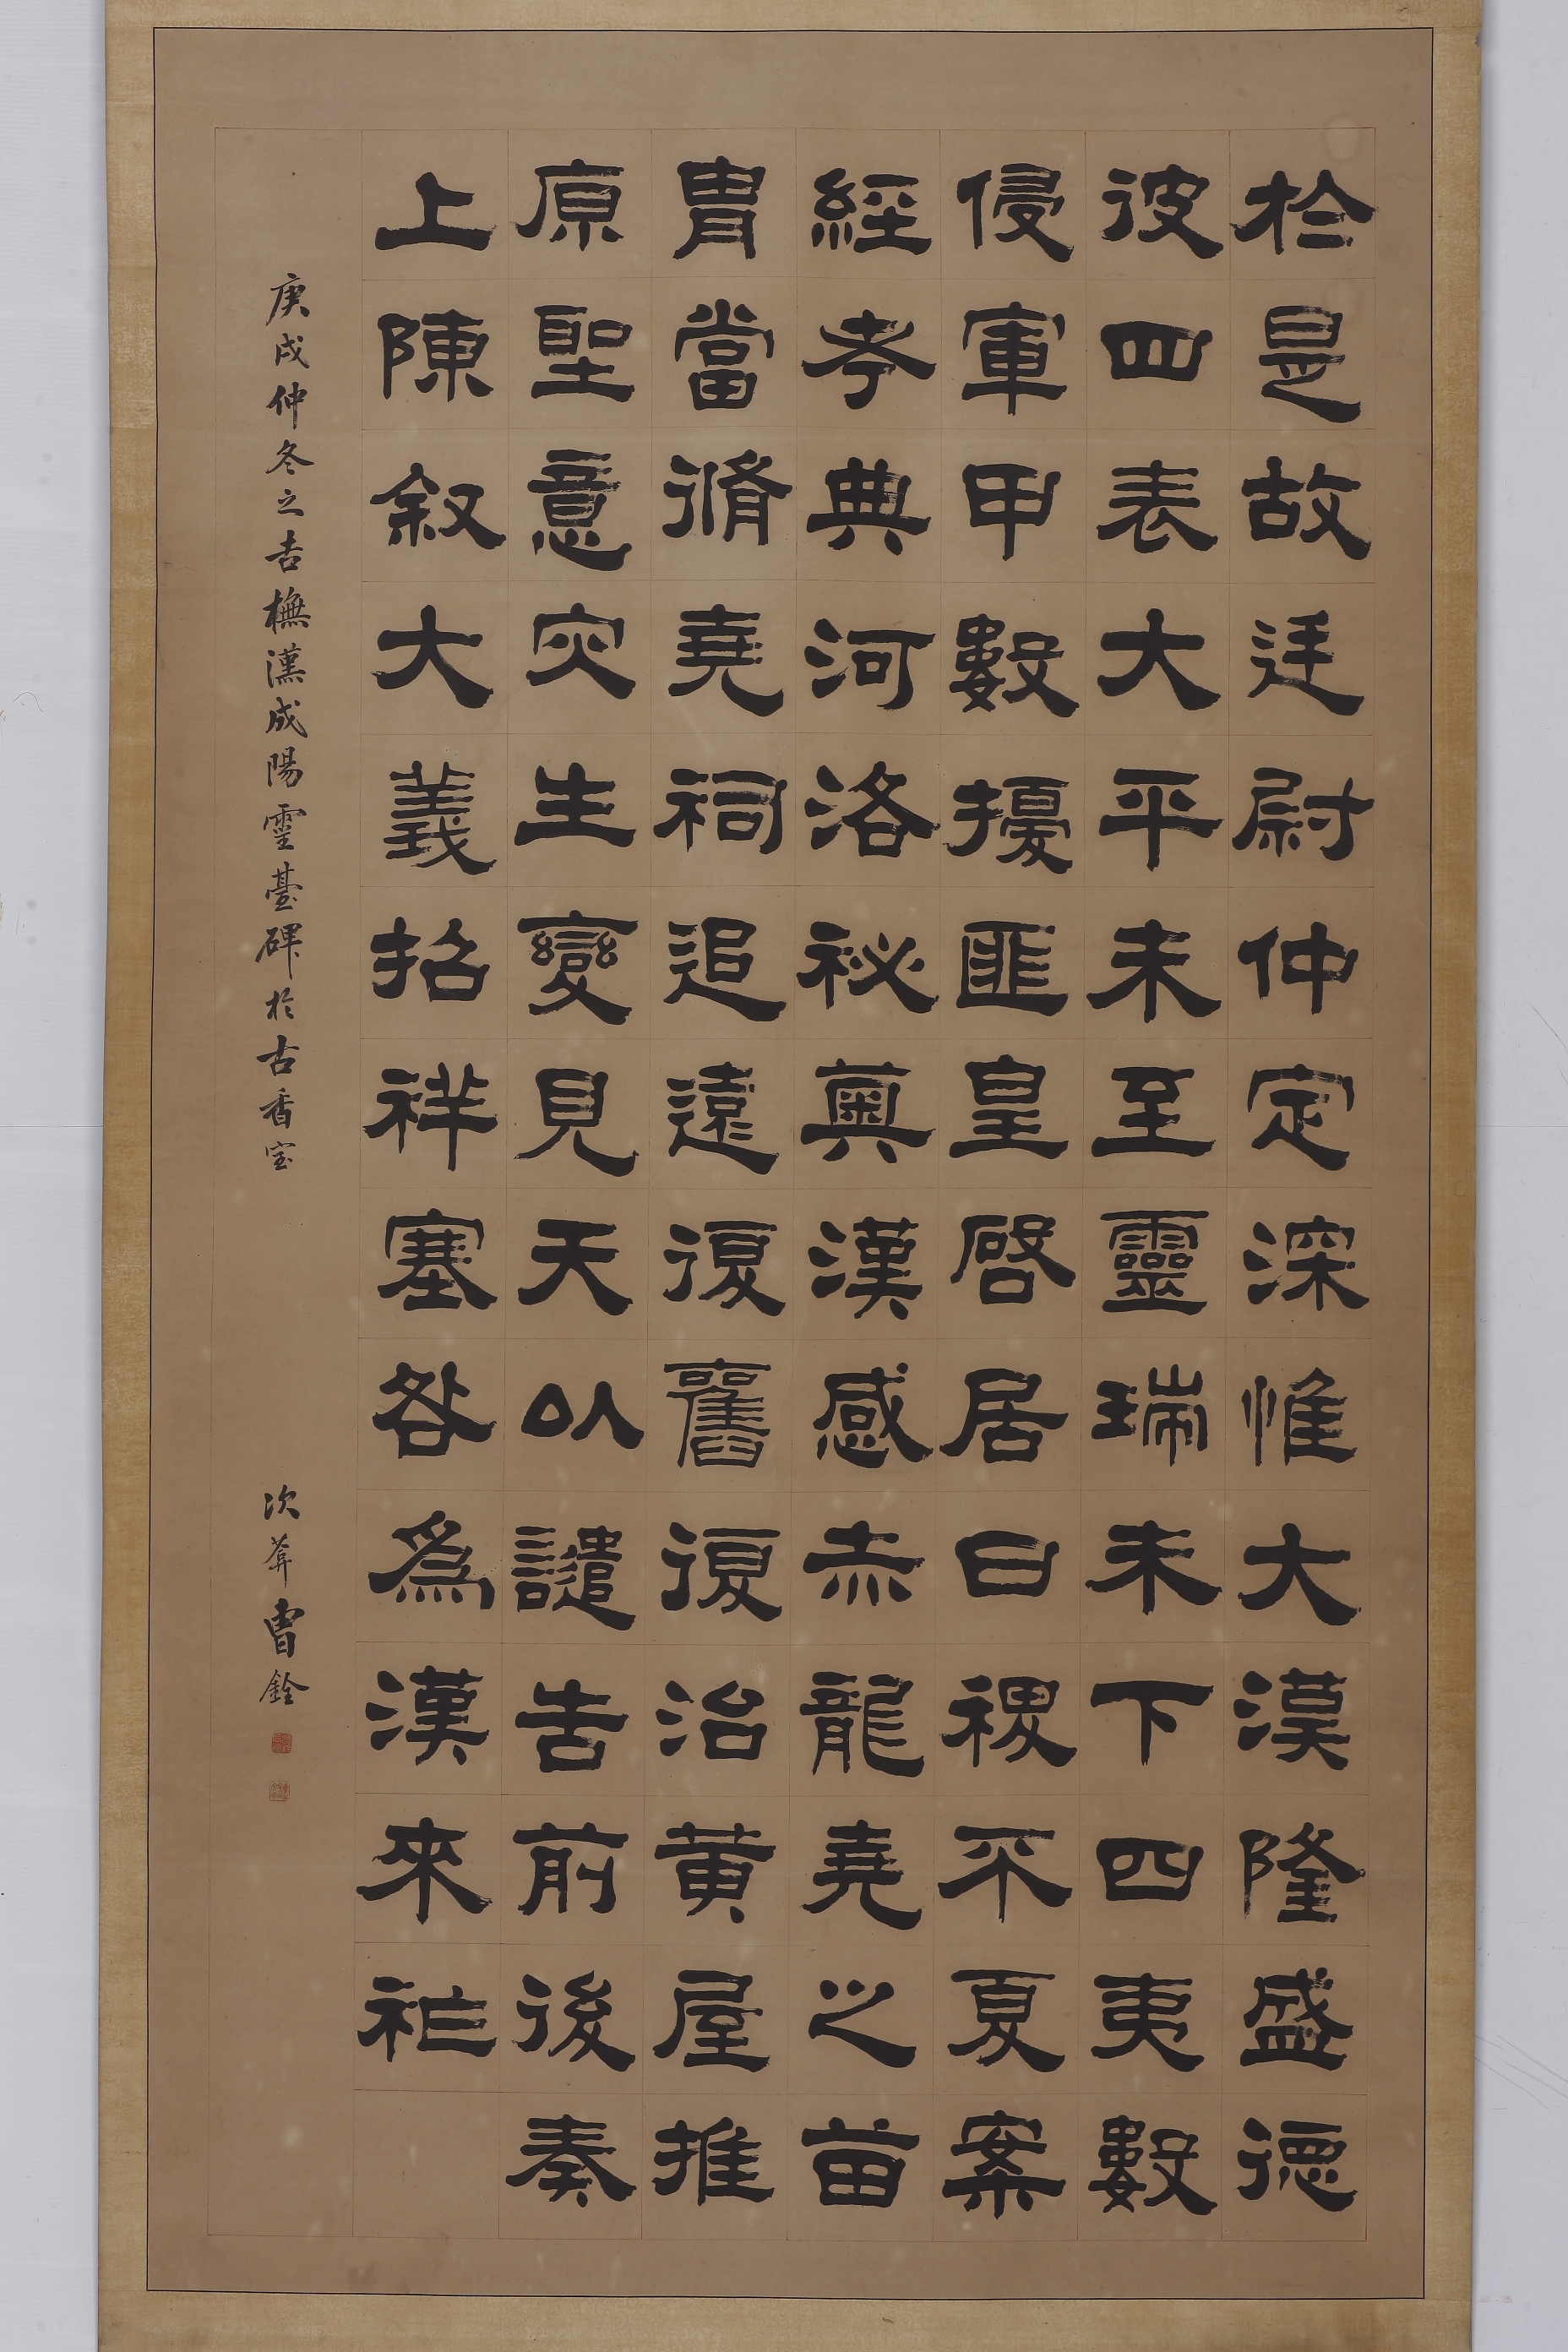 於是故廷尉仲定深惟大漢隆盛德
彼四表大平未至靈瑞未下四夷數
侵軍甲數擾匪皇啓居日稷不夏案
經考典河洛祕奧漢感赤龍堯之苗
胄當脩堯祠追遠復舊復治黃屋推
原聖意灾生變見天以譴告前後奏
上陳叙大義招祥塞咎為漢來祉
庚戌仲冬之吉橅漢成陽靈臺碑於古香室
次葊曹銓